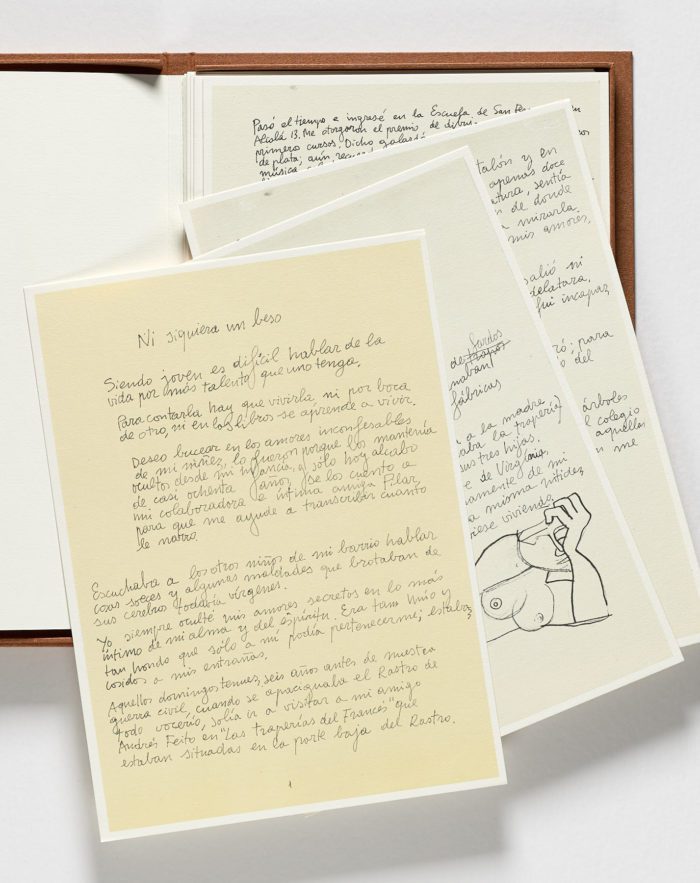 Pasó el tiempo e ingresé en la Escuela de San Fer en
Alcalá 13. Me otorgaron el premio de
primeros cursos. Dicho
de plata; aún,
música
talón y en
apenas doce
atura, sentía
s de donde
a mirarla.
mis amores,
alió mi
delatara.
fui incapaz
ró; para
o del
árboles
l colegio
aquellas
n me
fardos
de trapos
maban
fábricas
a a la madre
vaba la trapería)
sus tres hijas.
e de Virginia.
amente! de mi
a misma nitidez
viese viviendo.
Ni siquiera un beso
Siendo joven es difícil hablar de la
vida por más talento que uno tenga.
Para contarla hay que vivirla, ni por boca
de otro, ni en los libros se aprende a vivir.
Deseo bucear en los amores inconfesables
de mi niñez, lo fueron porque los mantenía
ocultos desde mi infancia, y sólo hoy, al cabo
de casi ochenta años, se los cuento a
mi colaboradora e íntima amiga Pilar,
para que me ayude a transcribir cuanto
le narro.
Escuchaba a los otros niños de mi barrio hablar
cosas soeces y algunas maldades que brotaban de
sus cerebros todavía vírgenes.
Yo siempre oculté mis amores secretos en lo más
íntimo de mi alma y del espíritu. Era tan mío y
tan hondo que sólo a mí podía pertenecerme; estaba,
cosidos a mis entrañas.
Aquellos domingos tenues, seis años antes de nuestra
guerra civil, cuando se apaciguaba el Rastro de
todo vocerío, solía ir a visitar a mi amigo
Andrés Feito en "Las traperías del Francés" que
estaban situadas en la parte baja del Rastro.
1